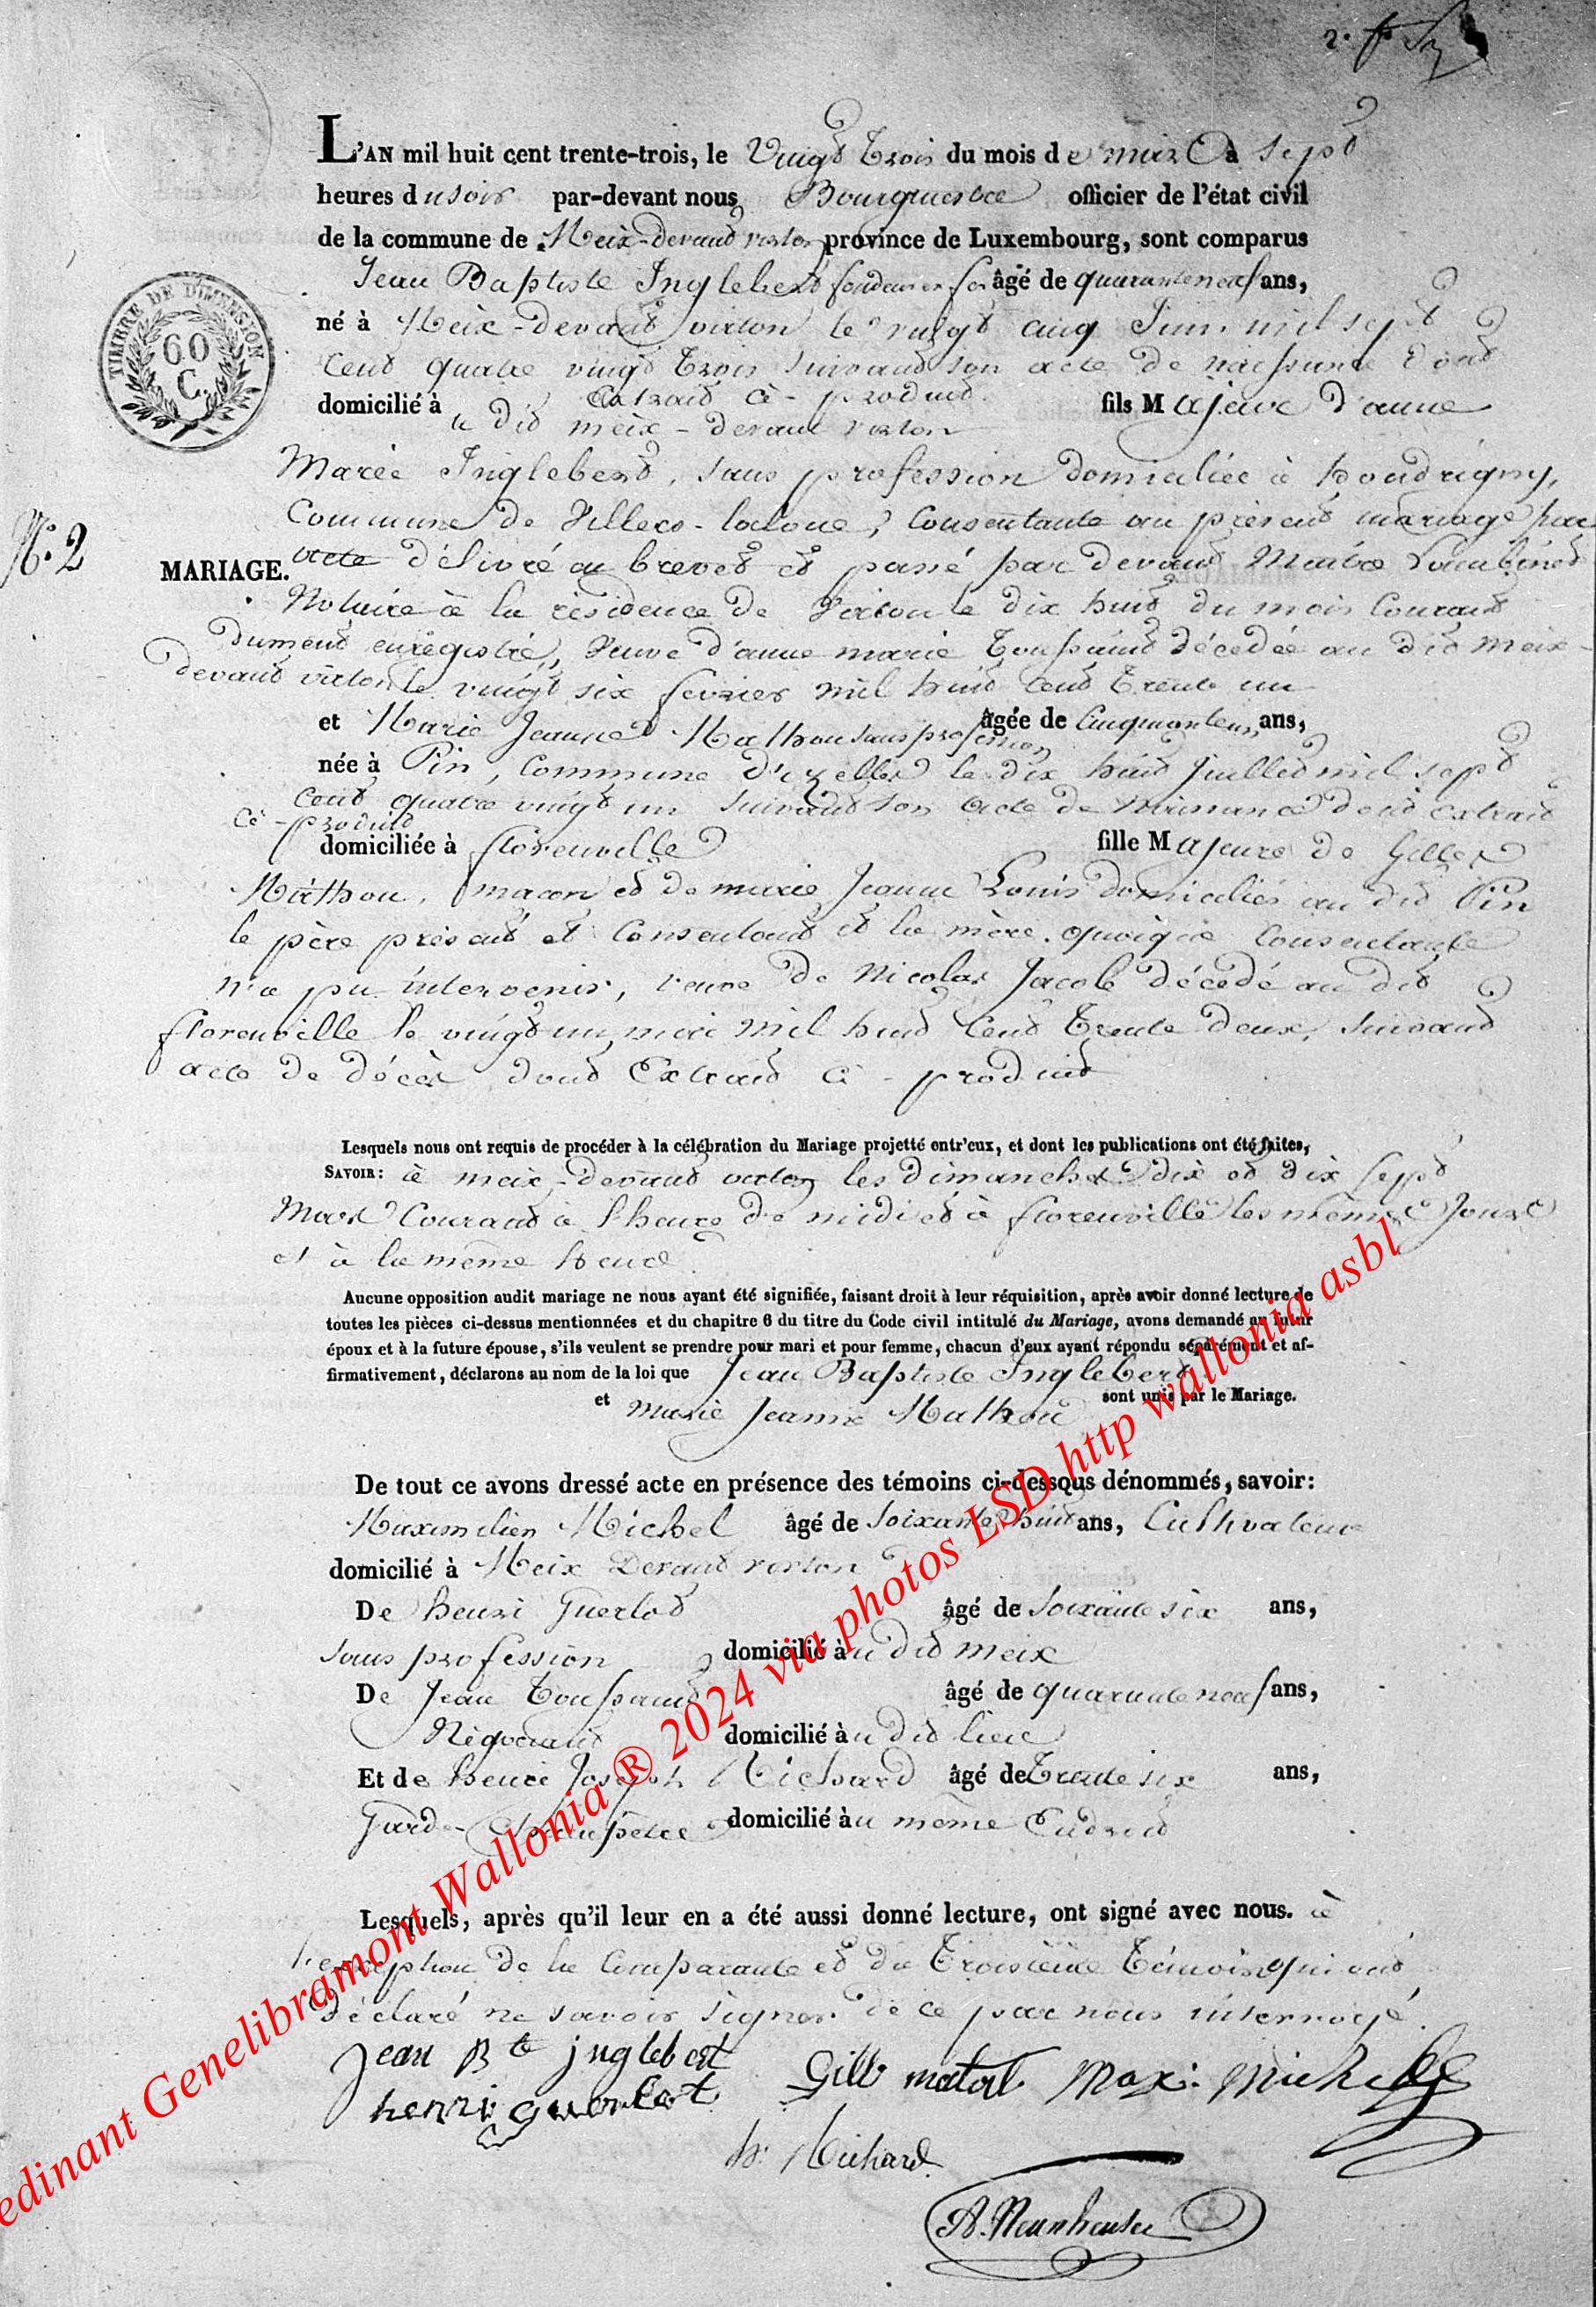 L'AN mil huit cent trente-trois, le vingt trois du mois de mars à sept
heures du soir par-devant nous Bourguestre officier de l'état civil
de la commune de Meix-devant virton province de Luxembourg, sont comparus
Jean Baptiste Inglebert fondeur en fer âgé de quarante neuf ans,
né à Meix-devant virton le vingt cinq Juin mil sept
cent quatre vingt trois suivant son acte de naissance dont
Extrait ci-produit
domicilié à fils Majeur d'anne
u dit meix-devant virton
Marie Inglebert, sans profession domiciliée à houdrigny,
N.º 2
Commune de Villers-laloue, consentante au présent mariage par
MARIAGE.
acte délivré en brevet et passé par devant Maître
Notaire à la résidence de Virton le dix huit du mois Courant
dument enregistré, veuve d'anne marie Toussaint décedée au dit meix-
devant virton le vingt six fevrier mil huit cent trente un
et Marie Jeanne Mathou sans profession âgée de Cinquante un ans,
née à Pin, Commune d'izelles le dix huit Juillet mil sept
cent quatre vingt un suivant son acte de naissance dont extrait
ci-produit
domiciliée à florenville fille Majeure de Gilles
Mathou, maçon et de marie Jeanne Louis domiciliés au dit Pin
le père présent et Consentant et la mère quoique Consentante
n'a pu intervenir, veuve de Nicolas Jacob décedé au dit
florenville le vingt un mai mil huit cent trente deux, suivant
acte de décès dont Extrait ci-produit
Lesquels nous ont requis de procéder à la célébration du Mariage projetté entr'eux, et dont les publications ont été faites,
SAVOIR: à meix-devant virton les dimanches dix et dix sept
Mars Courant à l'heure de midi et à florenville les mêmes Jours
et à la même heure
Aucune opposition audit mariage ne nous ayant été signifiée, faisant droit à leur réquisition, après avoir donné lecture de
toutes les pièces ci-dessus mentionnées et du chapitre 6 du titre du Code civil intitulé du Mariage, avons demandé au futur
époux et à la future épouse, s'ils veulent se prendre pour mari et pour femme, chacun d'eux ayant répondu séparément et af-
firmativement, déclarons au nom de la loi que Jean Baptiste Inglebert
et marie Jeanne Mathou sont unis par le Mariage.
De tout ce avons dressé acte en présence des témoins ci-dessous dénommés, savoir:
Maximilien Michel âgé de soixante huit ans, Cultivateur
domicilié à Meix Devant virton
De henri Guerlot âgé de soixante six ans,
sans profession domicilié au dit meix
De Jean Toussaint âgé de quarante neuf ans,
Négociant domicilié au dit lieu
Et de henri Joseph Richard âgé de trente six ans,
Garde-Champêtre domicilié au même Endroit
Lesquels, après qu'il leur en a été aussi donné lecture, ont signé avec nous. à
l'exception de la Comparante et du troisième témoin qui ont
déclaré ne savoir signer de ce par nous interroyé.
Jean Bte inglebert
Gille matot Max: Michel
henri guerlot
h: Richard
TIMBRE DE DIMENSION
60
C.
edinant Genelibramont Wallonia ® 2024 via photos LSD http wallonia asbl